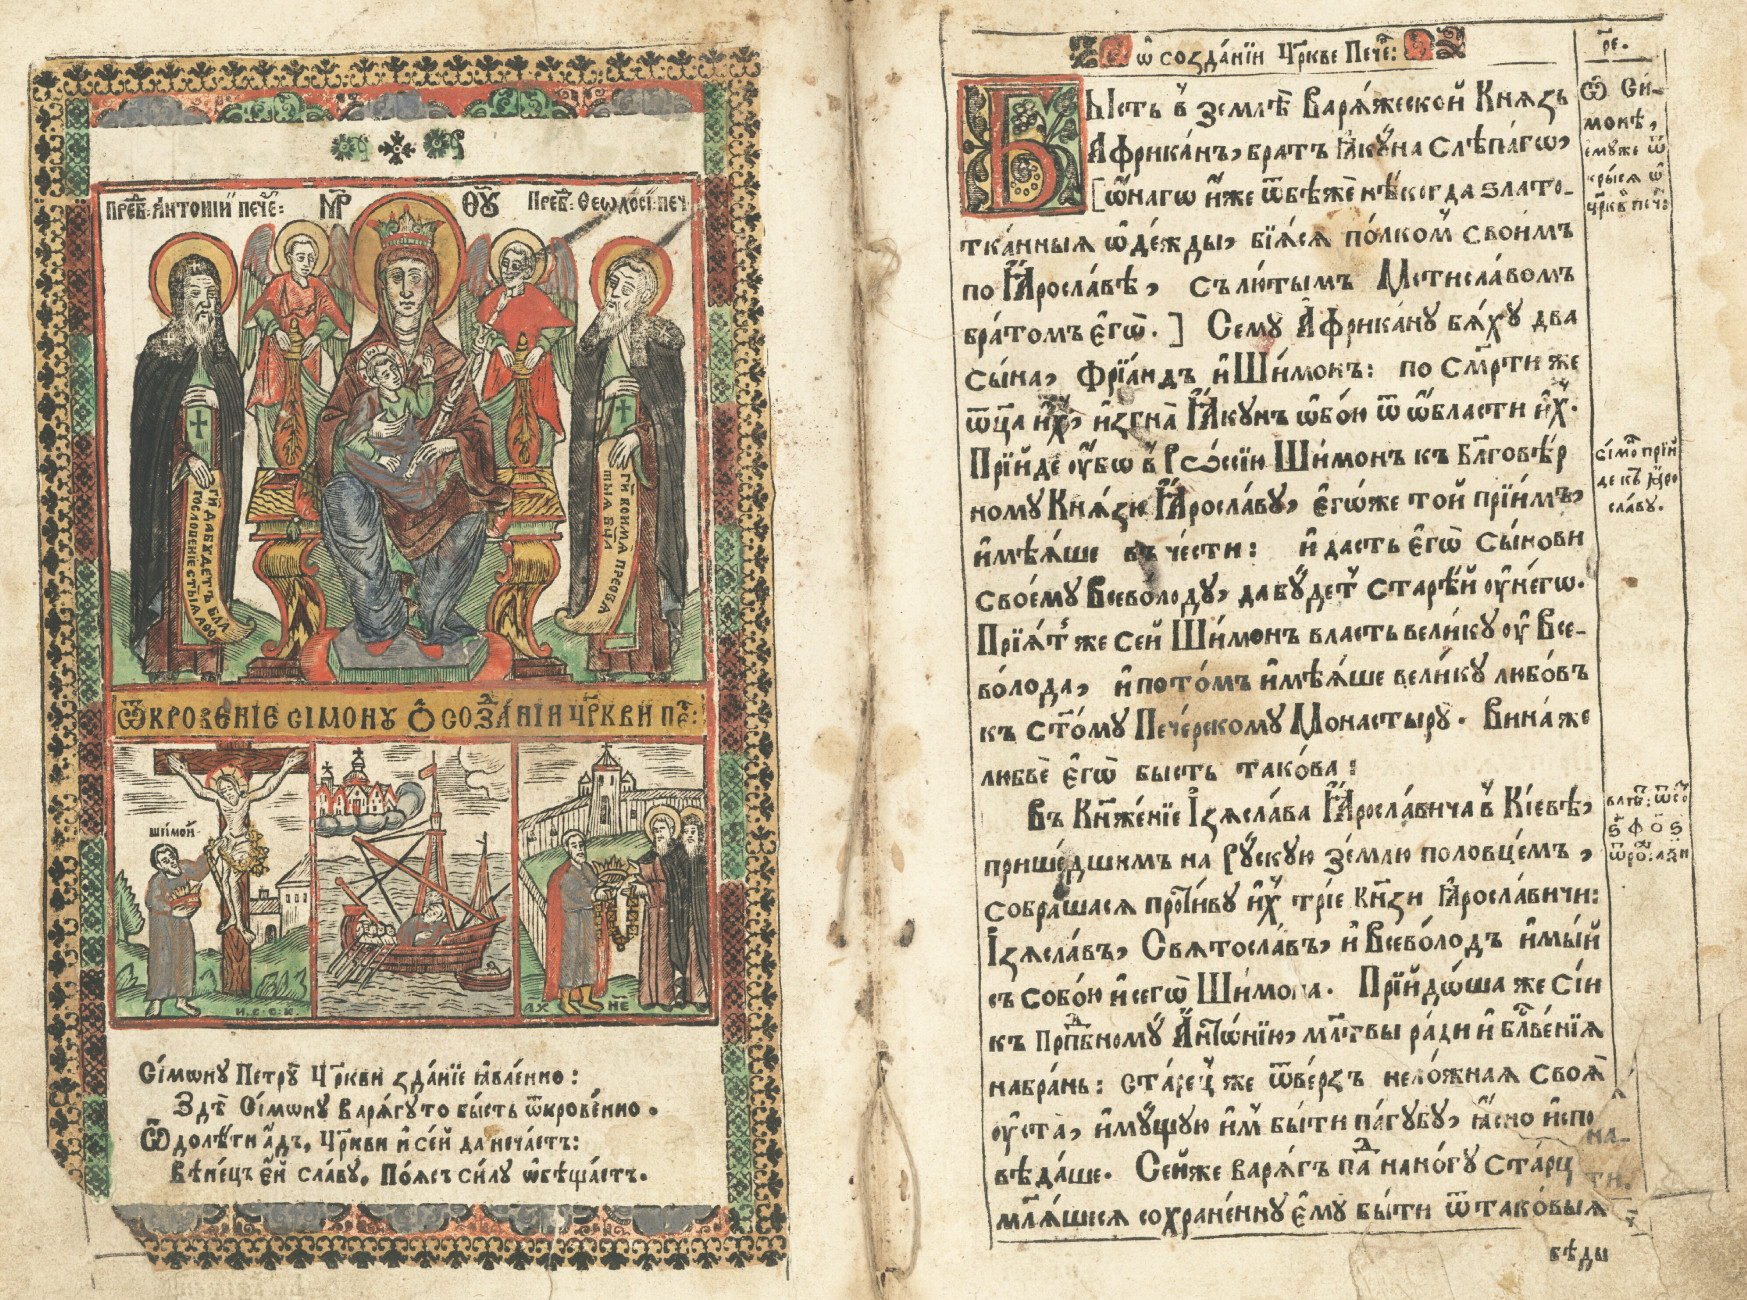 ПРЕПⷣБ: АНТОНІЙ ПЕЧЕⷬ:
МР҃
ѲꙊ҃
ПРЕПⷣБ: ѲЕОДОСІ: ПЕЧ
ГИ҃ ДА БꙊДЕТЪ БЛА
ГОСЛОВЕНІЕ СТЫ҃Ѧ АѲО
ГИ҃ ВО ИМѦ ПРЕСВѦ
ТЫѦ БЦ҃А
Ѿкровеніе Сімону Ѽ созⷣаніи Цр҃кви Пеⷱ:
ШИМОН
И. С. С. К.
҂АХ НЕ
Сімѡну Петрꙋ̀ Цр҃кви̇ зда́ніе ꙗ҆вле́нно:
Здѣ̀ Сі́мѡну Варѧ́гу то бы́сть ѿкрове́нно.
Ѿдолѣ́ти а҆́дъ, Цр҃кви и҆ се́й да не ча́етъ:
Вѣне́цъ є҆́й сла́ву, По́ѧсъ си́лу ѡ҆бѣща́етъ.
ѡ҆ созда́нїи Цр҃кве Печеⷬ:
р҃е.
Бы́сть в̾ землѣ̀ Варѧ́жеской Кнѧ́зь
Африка́нъ, бра́тъ Ꙗ҆кꙋ́на Слѣпа́гѡ,
[ѡ҆́нагѡ и҆́же ѿбѣжѐ нѣ́когда злато-
тка́нныѧ ѡ҆де́жды, бі́ѧсѧ по́лком̾ свои́мъ
по Ꙗ҆росла́вѣ, съ лю́тымъ Мстисла́вомъ
бра́томъ є҆гѡ̀.] Сему А҆фрика́ну бѧ́ху два
сы́на, Фрїа́ндъ и҆ Ши́монъ: по См҃рти же
ѿц҃а и҆́х̾, и҆згна̀ Ꙗ҆ку́нъ ѡ҆бо́ю ѿ ѡ҆́бласти и҆́х̾.
Прїи́де ᲂу҆́бѡ в̾ Рѡссі́ю Ши́монъ къ Бл҃говѣ́р
ному Кнѧ́зю Ꙗ҆росла́ву, є҆го́же то́й прїи́мъ,
и҆мѣ́ѧше въ че́сти: и҆ да́сть є҆гѡ̀ сы́нови
своему́ Все́володу, да бꙋ́дет̾ старѣ́й ᲂу҆ не́гѡ.
Прїѧ́т̾ же се́й Ши́монъ вла́сть вели́ку ᲂу҆ Все-
во́лода, и҆ пото́мъ и҆мѣ́ѧше вели́ку любо́въ
къ ст҃о́му Пече́рскому Монастыру. Вина́ же
любвѐ є҆гѡ̀ бы́сть такова:
Въ Кн҃же́ніе І҆зѧсла́ва Ꙗ҆росла́вича в̾ Кі́евѣ,
прише́дшимъ на Рꙋ́скую зе́млю поло́вцемъ,
собра́шасѧ проти́ву и҆́х̾ трі́е кнѧ҃зи Ꙗ҆росла́вичи:
І҆зѧсла́въ, Свѧтосла́въ, и҆ Все́володъ и҆мы́й
съ собо́ю и҆ сегѡ̀ Ши́мона. Прїидо́ша же сі́и
къ Прпⷣбному А҆нтѡ́нїю, мл҃твы ра́ди и҆ блⷭ҇ве́нїѧ
на бра́нь: ста́рец̾ же ѿве́рзъ нело́жнаѧ своѧ̀
ᲂу҆ста̀, и҆му́щую и҆́м̾ бы́ти па́губу, ꙗ҆́сно и҆спо
вѣ́даше. Се́й же варѧ́гъ паⷣ на но́гу ста́рц
млѧ́шесѧ сохране́нну є҆му̀ бы́ти ѿ таковы́ѧ
бѣды
Ѽ Си́-
монѣ,
є҆мꙋ́же ѿ
кры́сѧ ѡ҆
Цр҃кв печ:
Сі́моⷩ прїи
де къ Ꙗ҆ро
сла́ву.